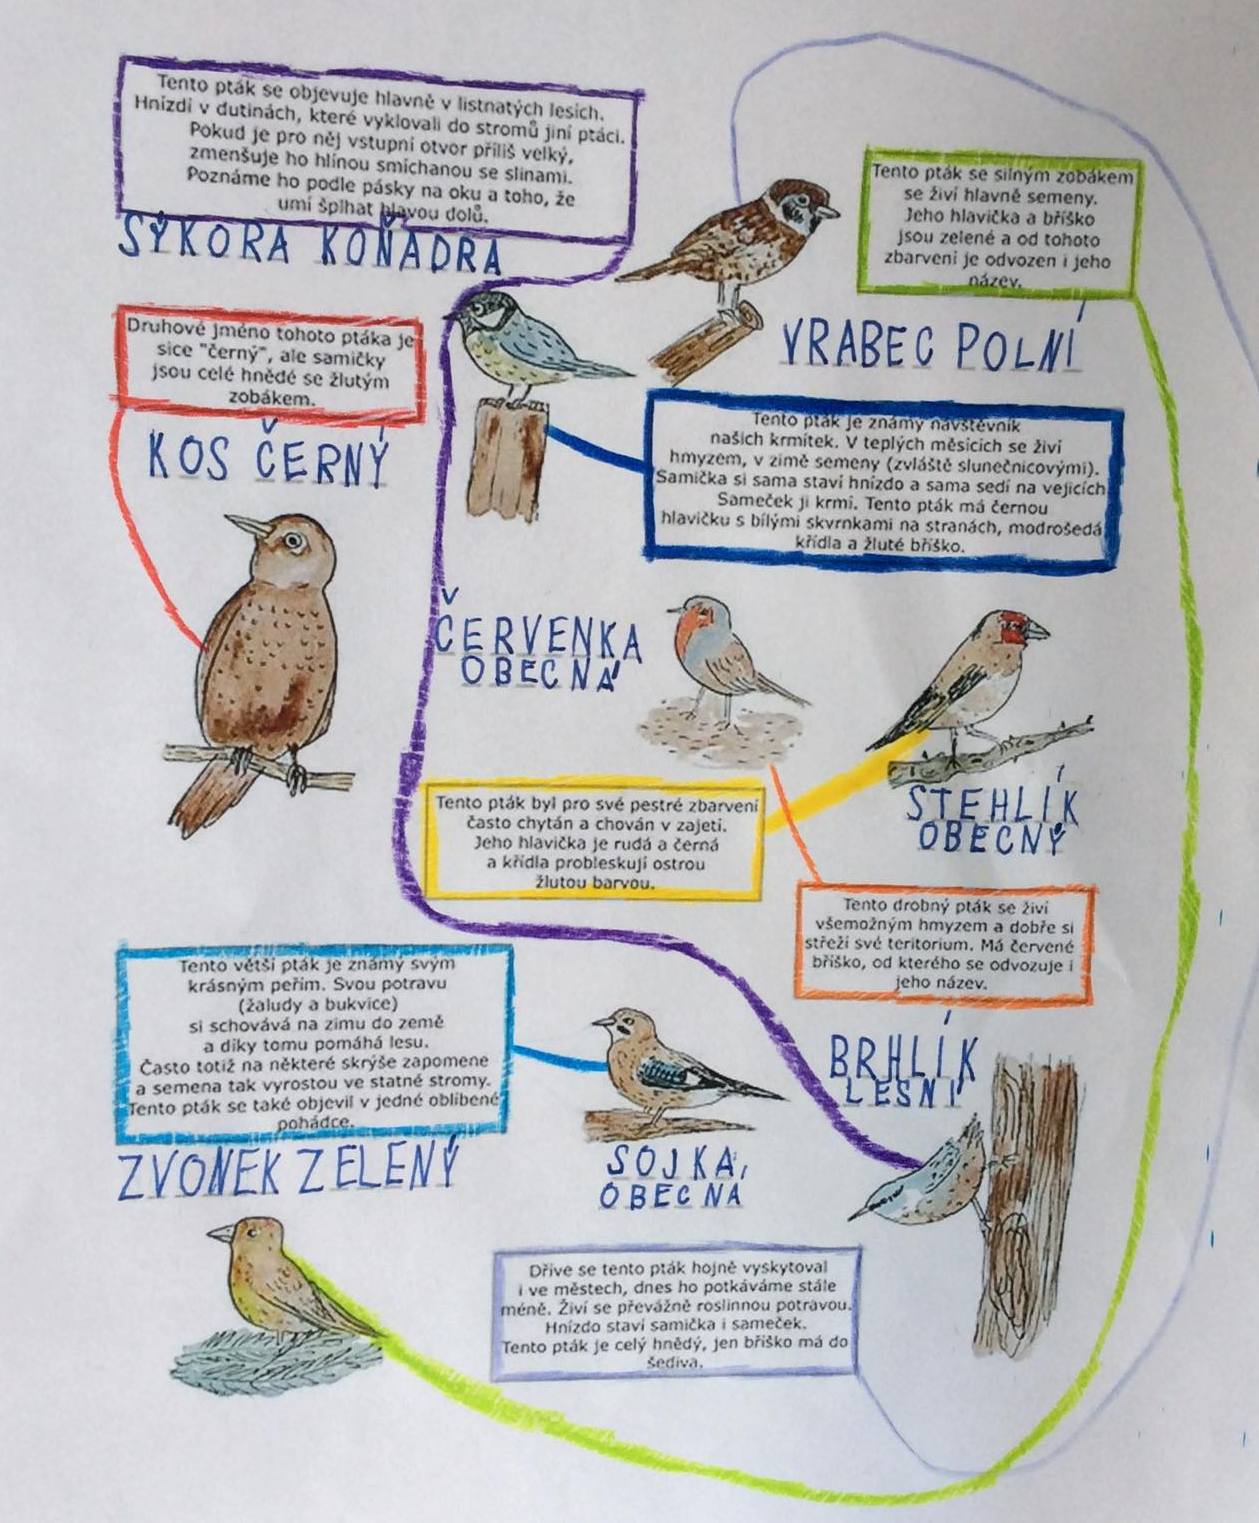 Tento pták se objevuje hlavně v listnatých lesích.
Hnízdí v dutinách, které vyklovali do stromů jiní ptáci.
Pokud je pro něj vstupní otvor příliš velký,
zmenšuje ho hlínou smíchanou se slinami.
Poznáme ho podle pásky na oku a toho, že
umí šplhat hlavou dolů.
SÝKORA KOŇADRA
Tento pták se silným zobákem
se živí hlavně semeny.
Jeho hlavička a bříško
jsou zelené a od tohoto
zbarvení je odvozen i jeho
název.
VRABEC POLNÍ
Druhové jméno tohoto ptáka je
sice "černý", ale samičky
jsou celé hnědé se žlutým
zobákem.
KOS ČERNÝ
Tento pták je známý návštěvník
našich krmítek. V teplých měsících se živí
hmyzem, v zimě semeny (zvláště slunečnicovými).
Samička si sama staví hnízdo a sama sedí na vejcích
Sameček ji krmí. Tento pták má černou
hlavičku s bílými skvrnkami na stranách, modrošedá
křídla a žluté bříško.
ČERVENKA
OBECNÁ
STEHLÍK
OBECNÝ
Tento pták byl pro své pestré zbarvení
často chytán a chován v zajetí.
Jeho hlavička je rudá a černá
a křídla probleskují ostrou
žlutou barvou.
Tento drobný pták se živí
všemožným hmyzem a dobře si
střeží své teritorium. Má červené
bříško, od kterého se odvozuje i
jeho název.
Tento větší pták je známý svým
krásným peřím. Svou potravu
(žaludy a bukvice)
si schovává na zimu do země
a díky tomu pomáhá lesu.
Často totiž na některé skrýše zapomene
a semena tak vyrostou ve statné stromy.
Tento pták se také objevil v jedné oblíbené
pohádce.
BRHLÍK
LESNÍ
ZVONEK ZELENÝ
SOJKA
OBECNÁ
Dříve se tento pták hojně vyskytoval
i ve městech, dnes ho potkáváme stále
méně. Živí se převážně roslinnou potravou.
Hnízdo staví samička i sameček.
Tento pták je celý hnědý, jen bříško má do
šediva.